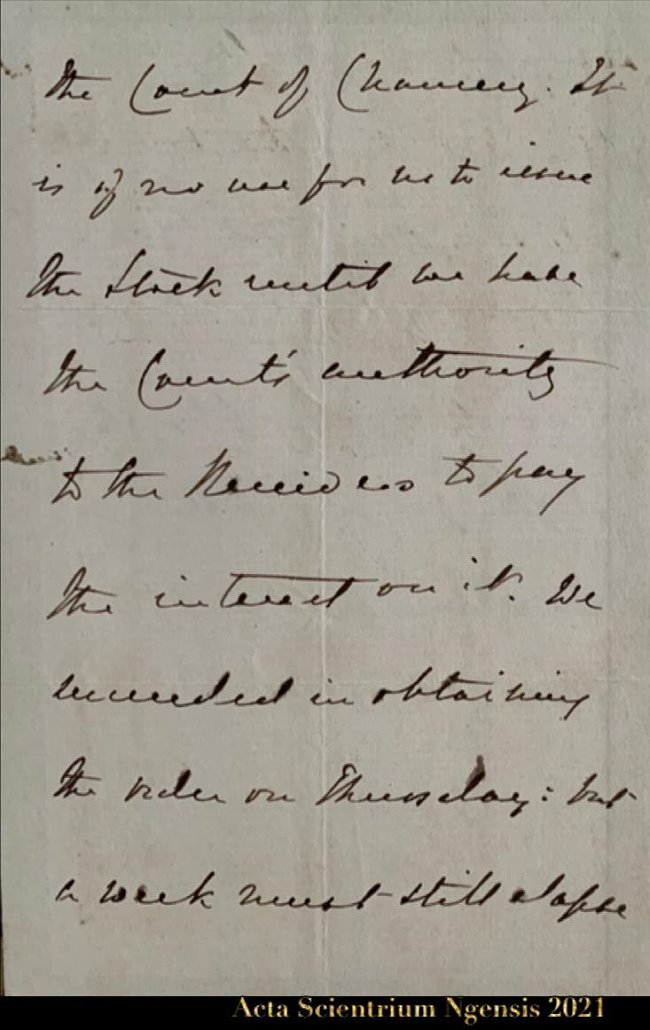 the Court of Chancery. It
is of no use for us to issue
the Stock until we have
the Court's authority
to the Receivers to pay
the interest on it. We
succeeded in obtaining
the order on Thursday: but
a week must still elapse
Acta Scientrium Ngensis 2021